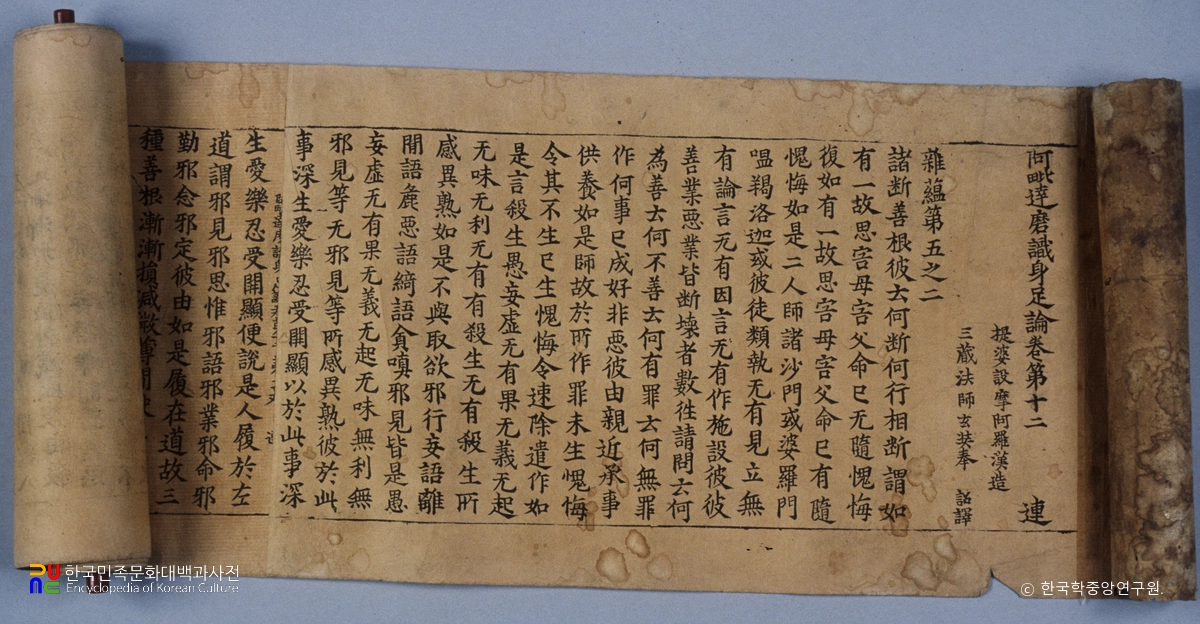 阿毗達磨識身足論卷第十二 連
提婆設摩阿羅漢造
三藏法師玄奘奉 詔譯
雜蘊第五之二
諸断善根彼去何断何行相断謂如
有一故思害母害父命已无隨愧悔
復如有一故思害母害父命已有隨
愧悔如是二人師諸沙門或婆羅門
嗢羯洛迦或彼徒類執无有見立無
有論言无有因言无有作施設彼彼
善業惡業皆断壞者數往請問去何
為善去何不善去何有罪去何無罪
作何事已成好非惡彼由親近承事
供養如是師故於所作罪未生愧悔
令其不生已生愧悔令速除遣作如
是言殺生愚妄虛无有果无義无起
无味无利无有有殺生无有殺生所
感異熟如是不與取欲邪行妄語離
閒語麁惡語綺語貪嗔邪見皆是愚
妄虛无有果无義无起无味無利無
邪見等无邪見等所感異熟彼於此
事深生愛樂忍受開顯以於此事深
生愛樂忍受開顯便說是人履於左
道謂邪見邪思惟邪語邪業邪命邪
勤邪念邪定彼由如是履在道故三
種善根漸漸損減
한국민족문화대백과사전
Encyclopedia of Korean Culture
© 한국학중앙연구원.